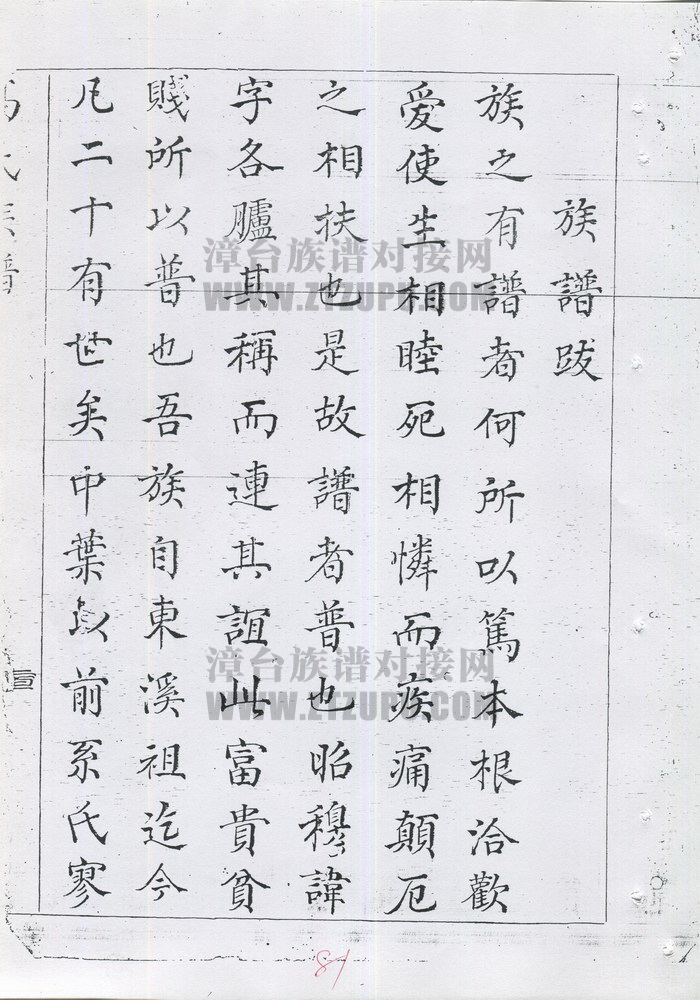 族譜跋
族之有譜者何所以篤本根洽歡
愛使生相睦死相憐而疾痛顛厄
之相扶也是故譜者普也昭穆諱
字各臚其稱而連其誼此富貴貧
賤所以普也吾族自東溪祖迄今
凡二十有世矣中葉以前系氏寥
氏族譜
漳台族谱对接网
WWW.ZTZUPU.COM
漳台族谱对接网
WWW.ZTZUPU.COM
81